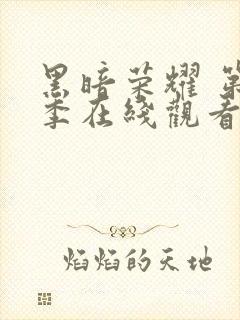 黑暗荣耀 第
季在线觀看
焰焰的天地